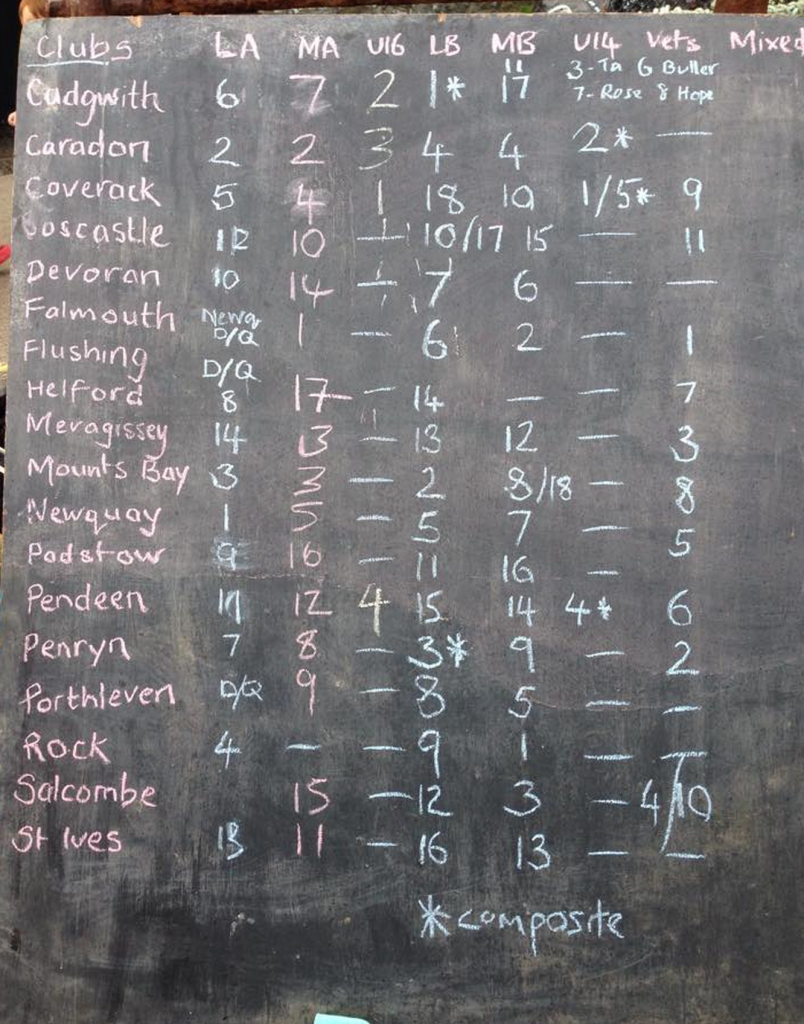 Clubs LA MA U16 LB MB U14 Vets Mixed
3-Ta 6 Buller
Cadgwith 6 7 2 1* 11 17 7-Rose 8 Hope
Caradon 2 2 3 4 4 2* —
Coverack 5 4 1 18 10 1/5* 9
oscastle 10 — 10/17 15 — 11
Devoran 10 14 — 7 6 — —
Falmouth Newq D/Q 1 — 6 2 — 1
Flushing D/Q
Helford 8 17 — 14 — — 7
Mevagissey 14 13 — 13 12 — 3
Mounts Bay 3 3 — 2 8/18 — 8
Newquay 1 5 — 5 7 — 5
Padstow 9 16 — 11 16 —
Pendeen 12 4 15 14 4* 6
Penryn 7 8 — 3* 9 — 2
Porthleven D/Q 9 — 8 5 — —
Rock 4 — — 9 1 — —
Salcombe 15 — 12 3 — 4/10
St Ives 13 11 — 16 13 — —
*composite